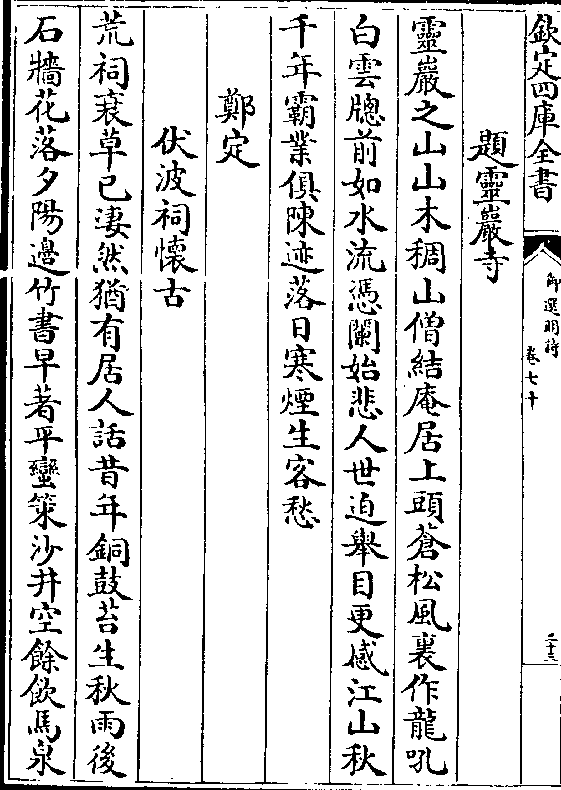 欽定四庫全書
御選明詩
卷七十
二十六
題靈巖寺
靈巖之山山木稠山僧結庵居上頭蒼松風裏作龍吼
白雲牕前如水流憑闌始悲人世迫舉目更感江山秋
千年霸業俱陳迹落日寒煙生客愁
鄭定
伏波祠懷古
荒祠衰草已淒然猶有居人話昔年銅鼓苔生秋雨後
石牆花落夕陽邊竹書早著平蠻策沙井空餘飲馬泉